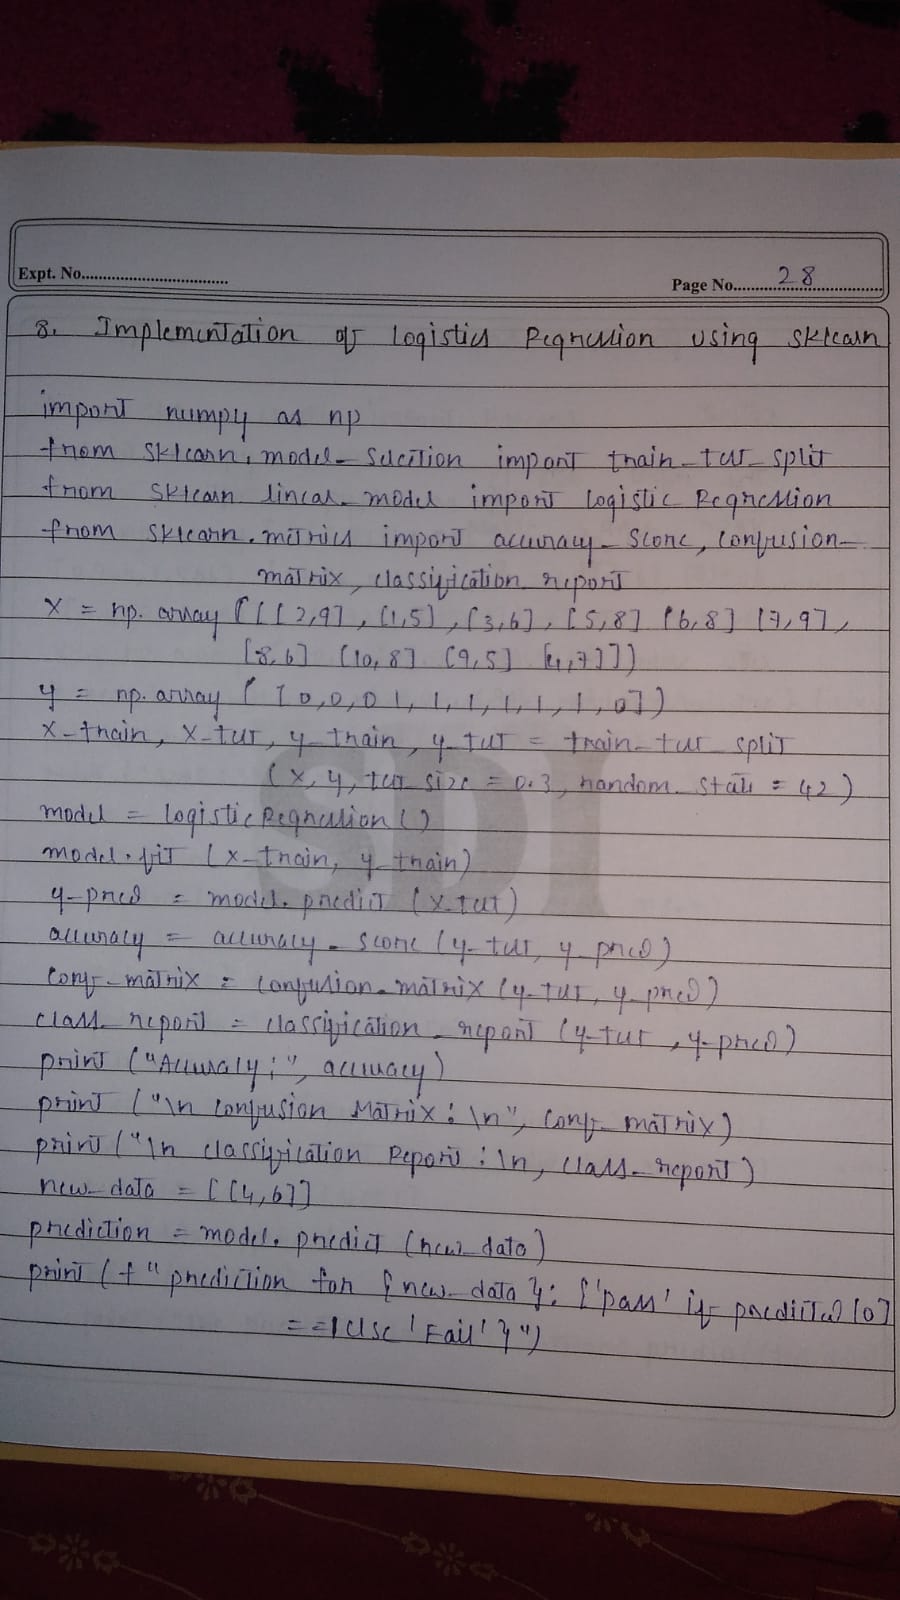 Expt. No.
Page No. 28
8. Implementation of Logistics Regression using Sklearn
import numpy as np
from sklearn. model_selection import train_test_split
from sklearn linear_model import Logistic Regression
from sklearn.metrics import accuracy_score, confusion_
matrix, classification_report
X = np. array ([[2,9], [1,5], [3,6], [5,8] [6,8] [7,9],
[8,6] [10,8] [9,5] [4,7]])
y = np. array ( [0,0,0 1, 1, 1, 1, 1, 1, 0])
X_train, X_test, y_train, y_test = train_test_split
(X, y, test_size = 0.3, random_state = 42)
model = LogisticRegression()
model.fit (X_train, y_train)
y_pred = model. predict (X_test)
accuracy = accuracy_score (y_test, y_pred)
conf_matrix = confusion_matrix (y_test, y_pred)
class_report = classification_report (y_test, y_pred)
print ("Accuracy:", accuracy)
print ("\n Confusion Matrix: \n", conf_matrix)
print ("\n classification Report: \n, class_report)
new_data = [[4,6]]
prediction = model. predict (new_data)
print (f" prediction for {new_data}: {'pass' if predicted[0]
==1 else 'Fail' }")
SDI